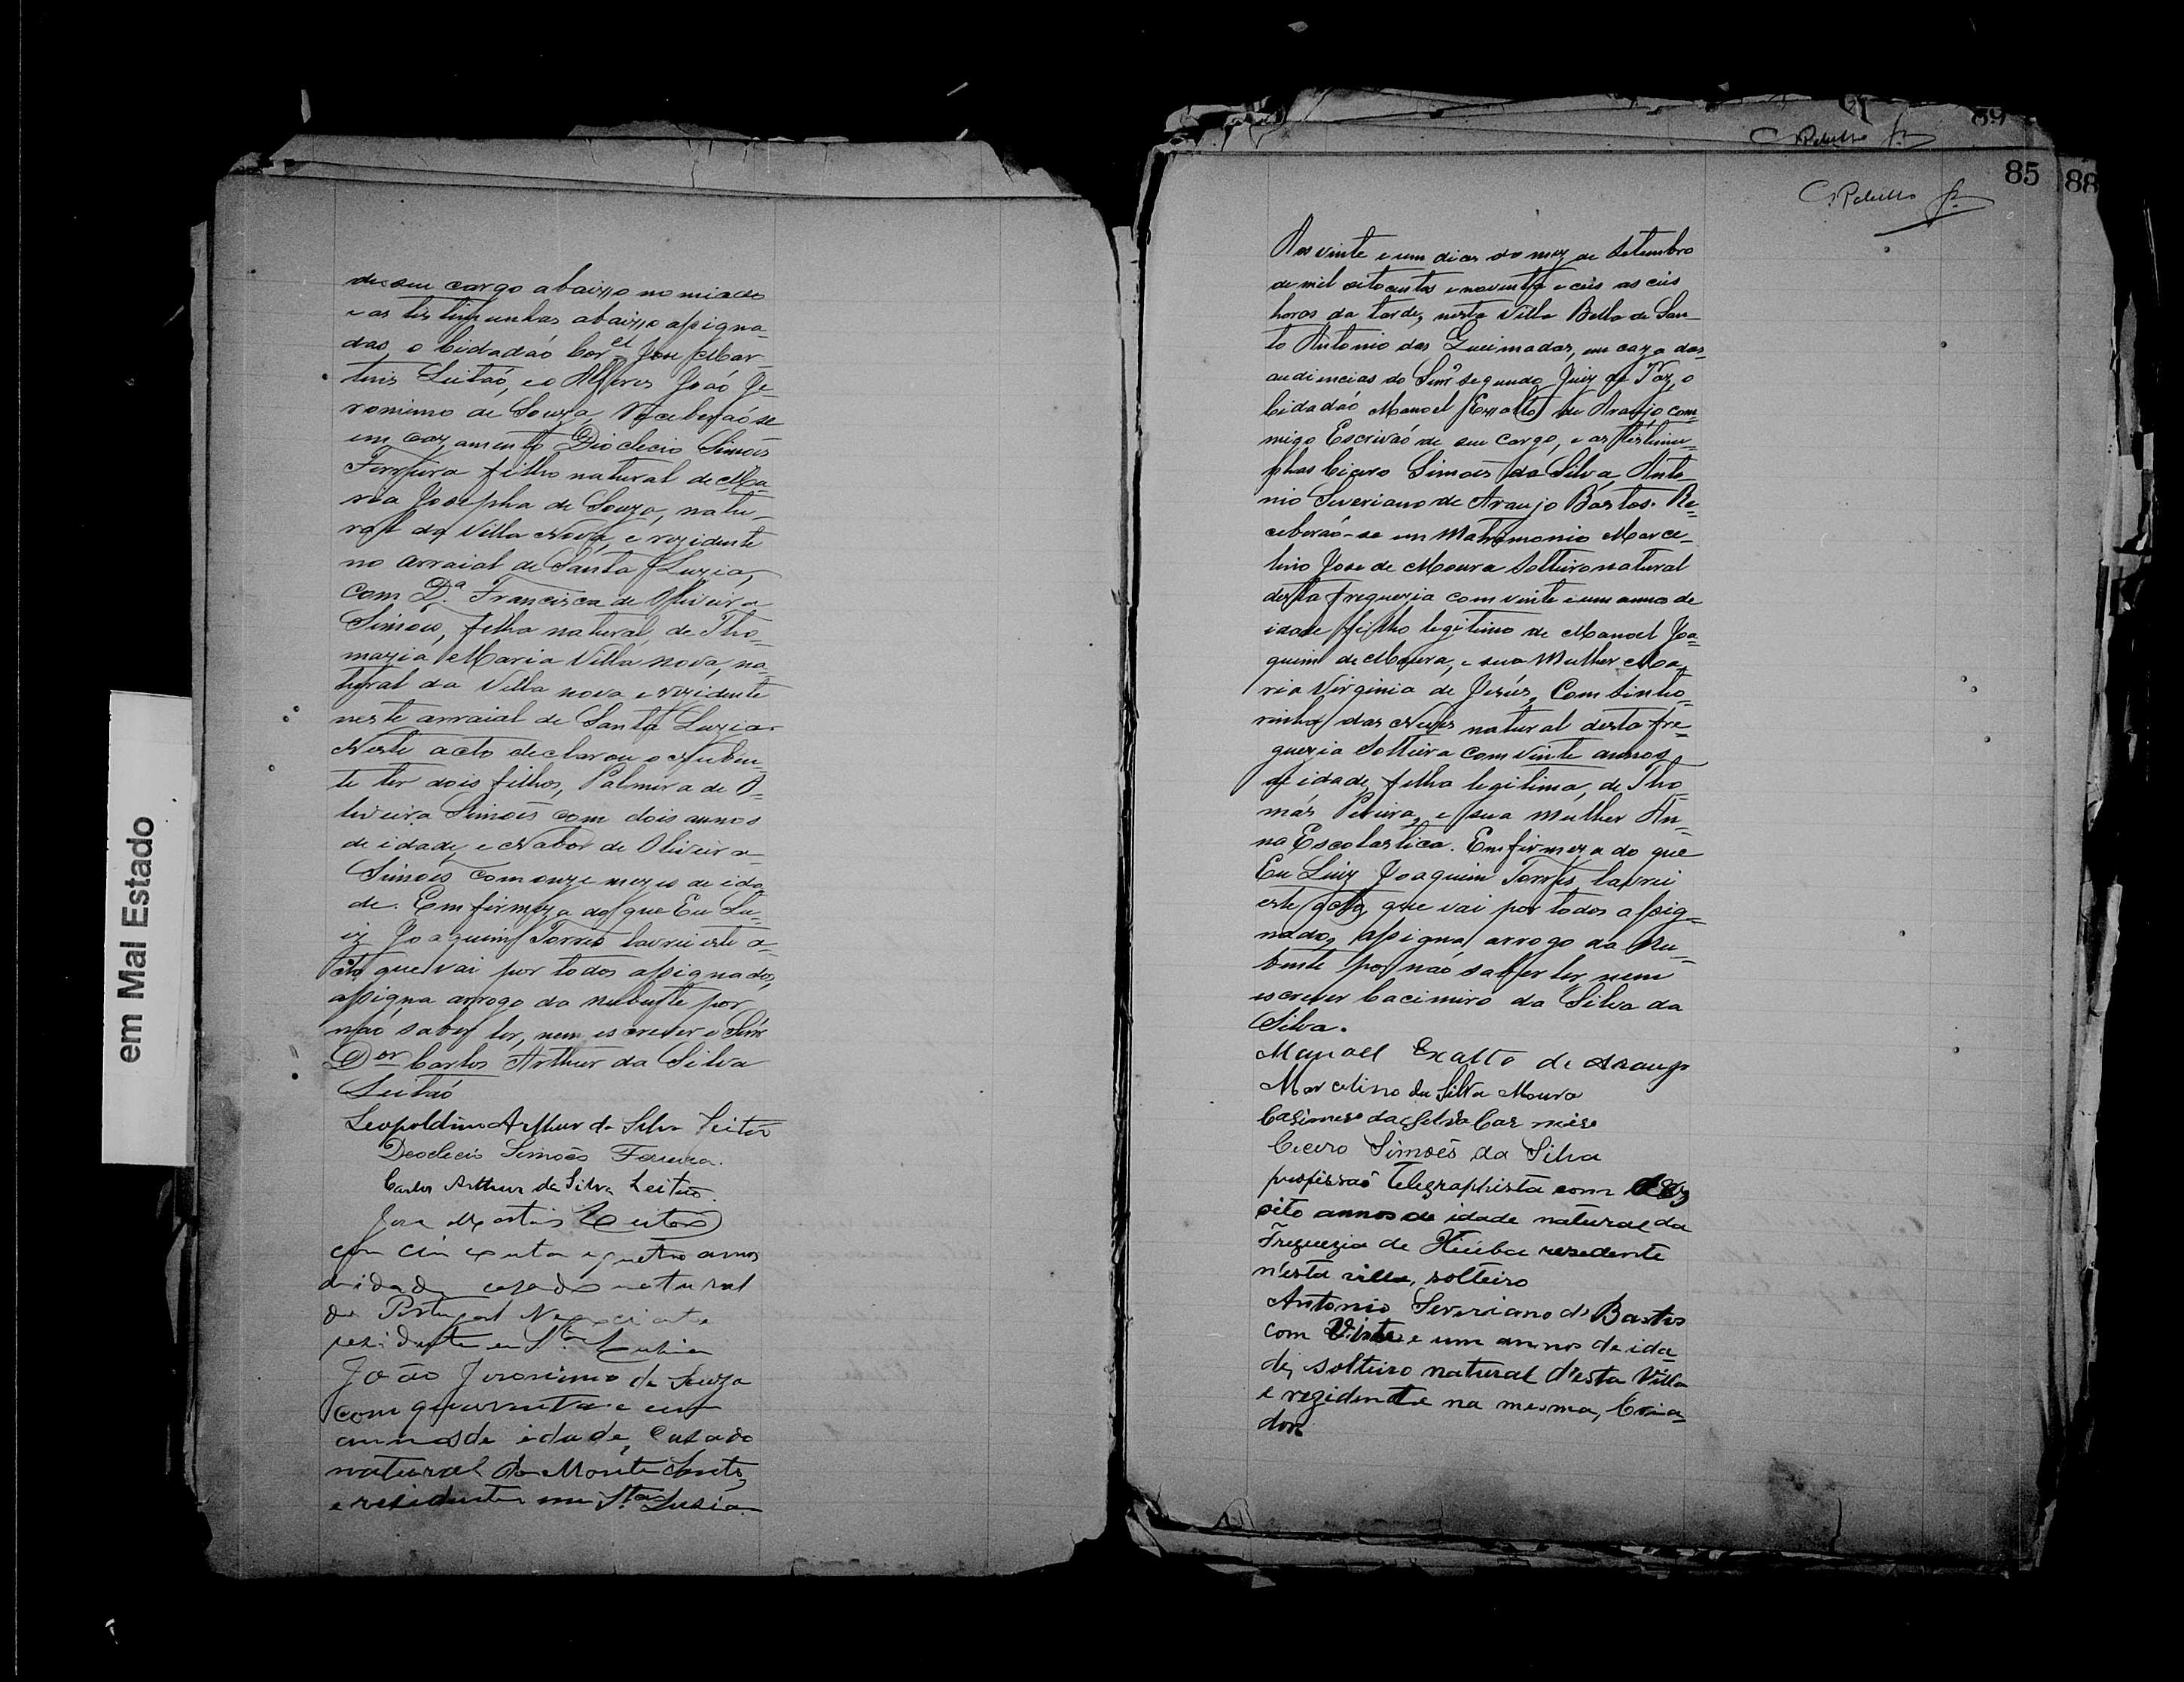 em Mal Estado
de seu cargo abaixo nomiado
e as testimunhas abaixo assigna-
das, o Cidadaó Cor.el Jose Mar-
tins Leitaó, e o Alferes Joaó Je-
ronimo de Souza, Receberaó-se
em cazamento Dioclecio Simoẽs
Ferreira filho natural de Ma-
ria Josepha de Souza, natu-
ral da Villa Nova, e rezidente
no arraial de Santa Luzia,
com D.a Francisca de Oliveira
Simoẽs, filha natural, de Tho-
mazia Maria Villa nova, na-
tural da Villa nova e rezidente
neste arraial de Santa Luzia.
Neste acto declarou o Nuben-
te ter dois filhos, Palmira de O-
liveira Simoẽs com dois annos
de idade, e Nabor de Oliveira
Simoẽs com onze mezes de ida-
de. Em firmeza do que Eu Lu-
iz Joaquim Torres lavrei este a-
cto que vai por todos assignados,
assigna arrogo da nubente por
naó saber ler, nem escrever o Snr
Dor Carlos Arthur da Silva
Leitaó
Leopoldino Arthur da Silva Leitão
Deoclecio Simoẽs Ferreira.
Carlos Arthur da Silva Leitão.
Jose Martins Leitão
com cincoenta e quatro annos
de idade casado natural
de Portugal Negociante
residente em Sta Lusia
João Jeronimo de Souza
com quarenta e um
annos de idade, Casado
natural do Monte Santo,
e residente em Sta Lusia.
89
85
88
Aos vinte e um dias do mez de Setembro
de mil oitocentos e noventa e ceis as ceis
horas da tarde, nesta Villa Bella de San-
to Antonio das Queimadas, em caza das
audiencias do Snr segundo Juiz de Paz, o
Cidadaó Manoel Exalto de Araujo com-
migo Escrivaó de seu Cargo, e as testimu-
nhas Cicero Simoẽs da Silva, Anto-
nio Severiano de Araujo Bastos. Re-
ceberaó-se em Matrimonio Marce-
lino Jose de Moura Solteiro natural
desta freguezia com vinte e um annos de
idade filho legitimo de Manoel Joa-
quim de Moura, e sua Mulher Ma-
ria Virginia de Jesús, Com Sinho-
rinha das Neves natural desta fre-
guezia Solteira com vinte annos
de idade, filha legitima, de Tho-
más Pereira, e sua mulher An-
na Escolastica. Em firmeza do que
Eu Luiz Joaquim Torres lavrei
este acto que vai por todos assig-
nado, assigna arrogo da Nu-
bente por naó saber ler, nem
escrever Cacimiro da Silva da
Silva.
Manoel Exalto de Araujo
Marcelino da Silva Moura
Casimiro da Silva
Cicero Simoẽs da Silva
profissaõ Telegraphista com dez
oito annos de idade natural da
Freguezia de Itiúba resedente
n'esta villa, solteiro
Antonio Severiano de Bastos
com Vinte e um annos de ida-
de, solteiro natural d'esta Villa
e rezidente na mesma, Cria-
dor